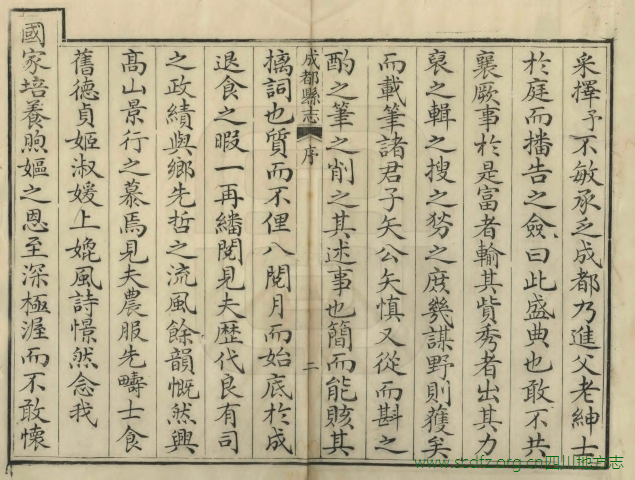 采擇予不敏承乏成都乃進父老紳士
於庭而播告之僉曰此盛典也敢不共
襄厥事於是富者輸其貲秀者出其力
裒之輯之搜之勞之庶幾謀野則獲矣
而載筆諸君子矢公矢慎又從而斟之
酌之筆之削之其述事也簡而能賅其
成都縣志
序
二
摛詞也質而不俚八閱月而始底於成
退食之暇一再繙閱見夫歷代良有司
之政績與鄉先哲之流風餘韻慨然興
高山景行之慕焉見夫農服先疇士食
舊德貞姬淑媛上媲風詩憬然念我
國家培養煦嫗之恩至深極渥而不敢懷
www.scdfz.org.cn四川地方志